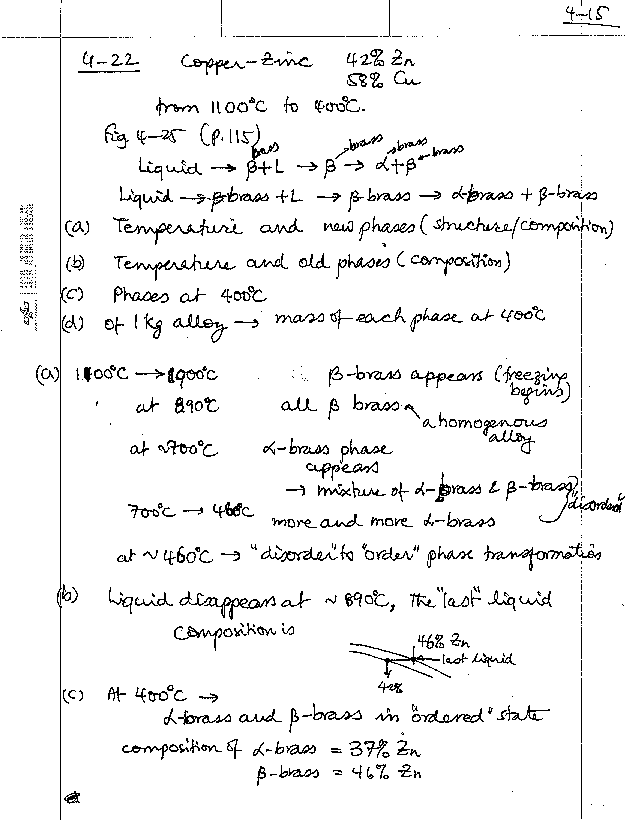 4-15
4-22 Copper-Zinc 42% Zn
58% Cu
from 1100°C to 400°C.
Fig 4-25 (P.115)
brass brass brass brass
Liquid → β+L → β → α+β
Liquid → β-brass + L → β-brass → α-brass + β-brass
(a) Temperature and new phases (structure/composition)
(b) Temperature and old phases (composition)
(c) Phases at 400°C
(d) of 1 kg alloy → mass of each phase at 400°C
(a) 1100°C → 900°C ∴ β-brass appears (freezing
begins)
at 890°C all β brass a homogenous
alloy
at ~700°C α-brass phase
appears
→ mixture of α-brass & β-brass
"disorder"
700°C → 460°C more and more α-brass
at ~460°C → "disorder" to "order" phase transformation
(b) Liquid disappears at ~890°C, the "last" liquid
composition is
46% Zn
last liquid
42%
(c) At 400°C →
α-brass and β-brass in "ordered" state
composition of α-brass = 37% Zn
β-brass = 46% Zn